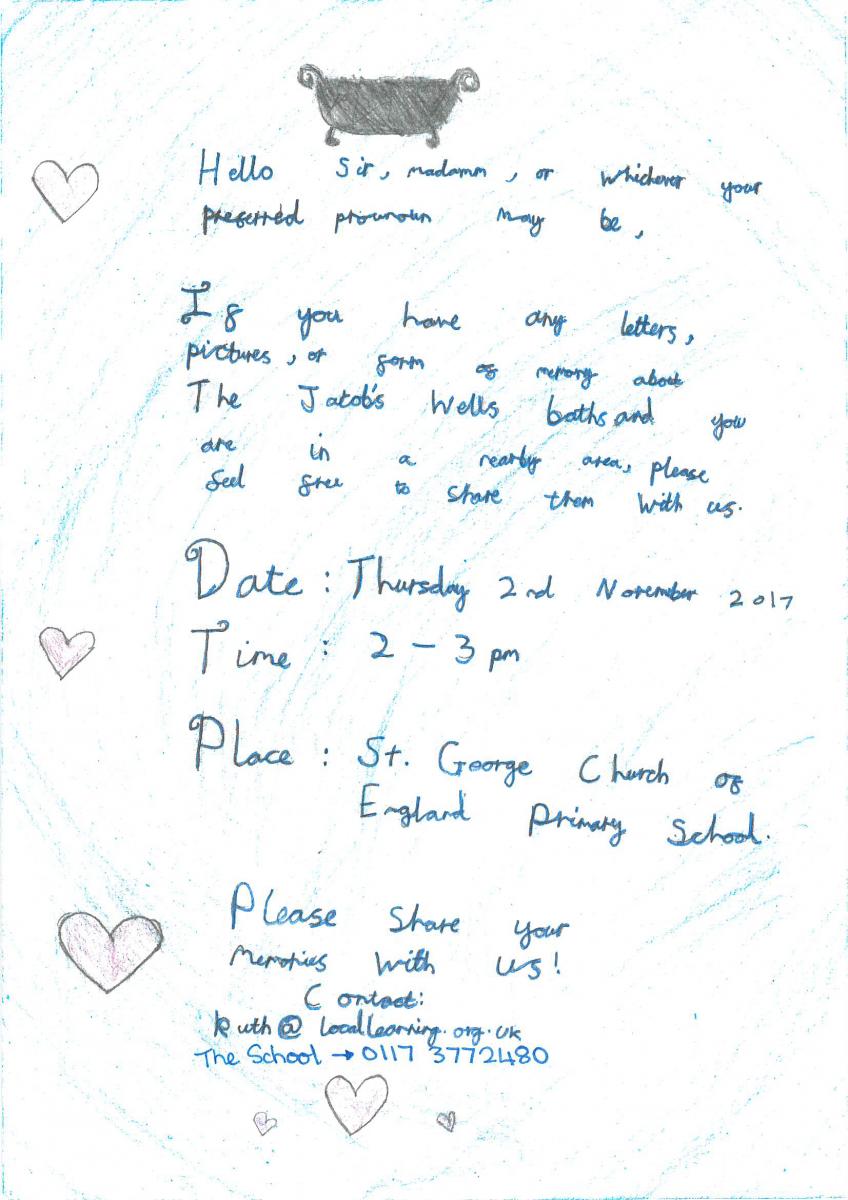 Hello Sir, madamm, or whichever your
preferred prounoun may be,
If you have any letters,
pictures, or form of memory about
The Jacob's Wells baths and you
are in a nearby area, please
feel free to share them with us.
Date: Thursday 2nd November 2017
Time: 2 - 3 pm
Place: St. George Church of
England Primary School.
Please share your
Memories with us!
Contact:
Ruth@locallearning.org.uk
The School → 0117 3772480